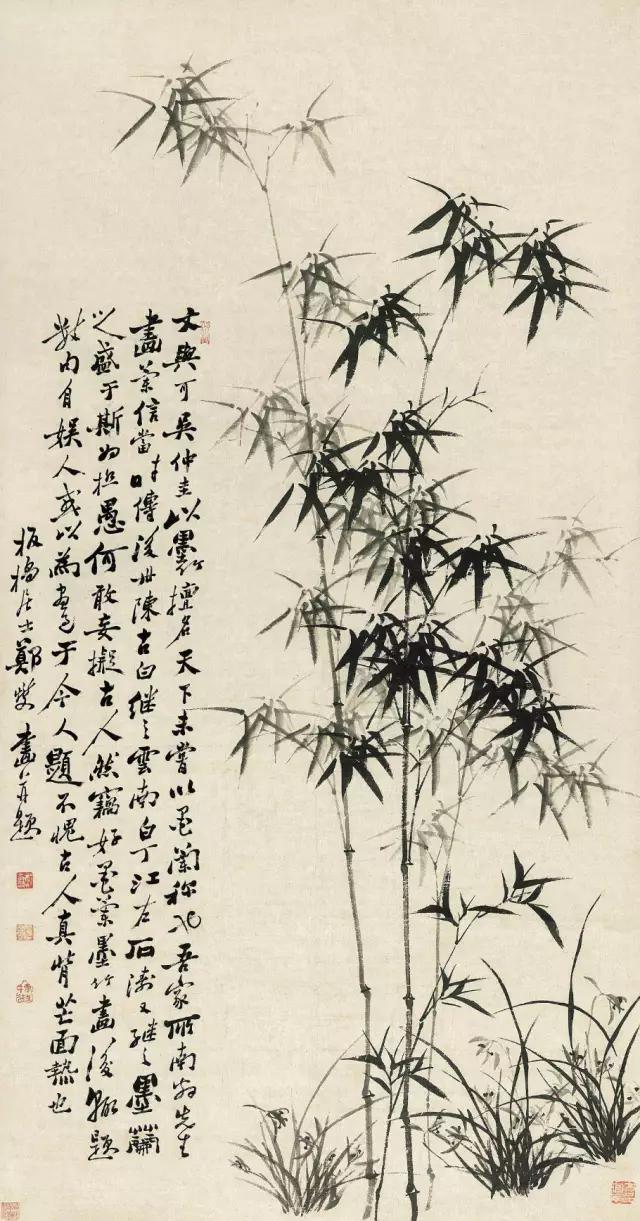 文與可吳仲圭以墨竹擅名天下未嘗以墨蘭称也吾家所南翁先生
畫蘭信當时傳後世陳古白继之雲南白丁江右石濤又继之墨蘭
之盛于斯为極愚何敢妄擬古人然竊好墨蘭墨竹畫後輒題
内自娱人或以為于今人題不愧古人真背芒面熱也
板橋居士鄭燮畫并題